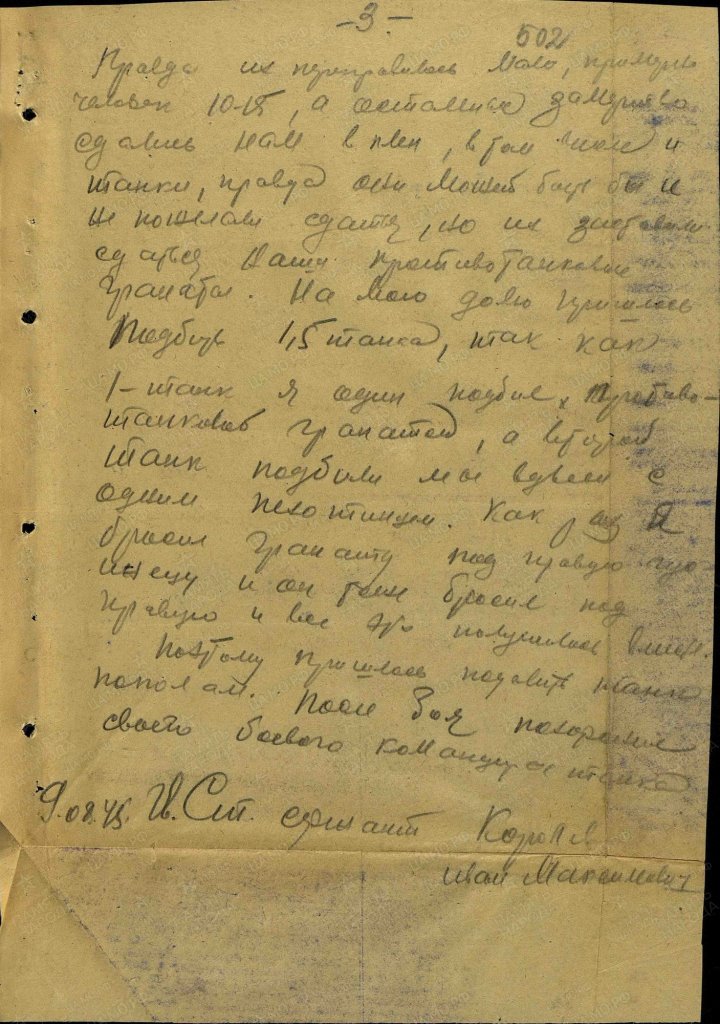 -3-
502
Правда их переправилось мало, примерно
человек 10-15, а остальные замертво
сдались нам в плен, в том числе и
танки, правда они может быть бы и
не пожелали сдатся, но их заставили
сдаться наши противотанковые
гранаты. На мою долю пришлось
подбить 1,5 танка, так как
1-танк я один подбил, противо-
танковой гранатой, а второй
танк подбили мы вдвоем с
одним пехотинцем. Как раз я
бросил гранату под правую гу-
сеницу и он тоже бросил под
правую и все это получилось вместе.
Поэтому пришлось поделить танк
пополам. После боя похоронили
своего боевого командира танка
9.08.45. Гв. Ст. сержант
Иван Максимович